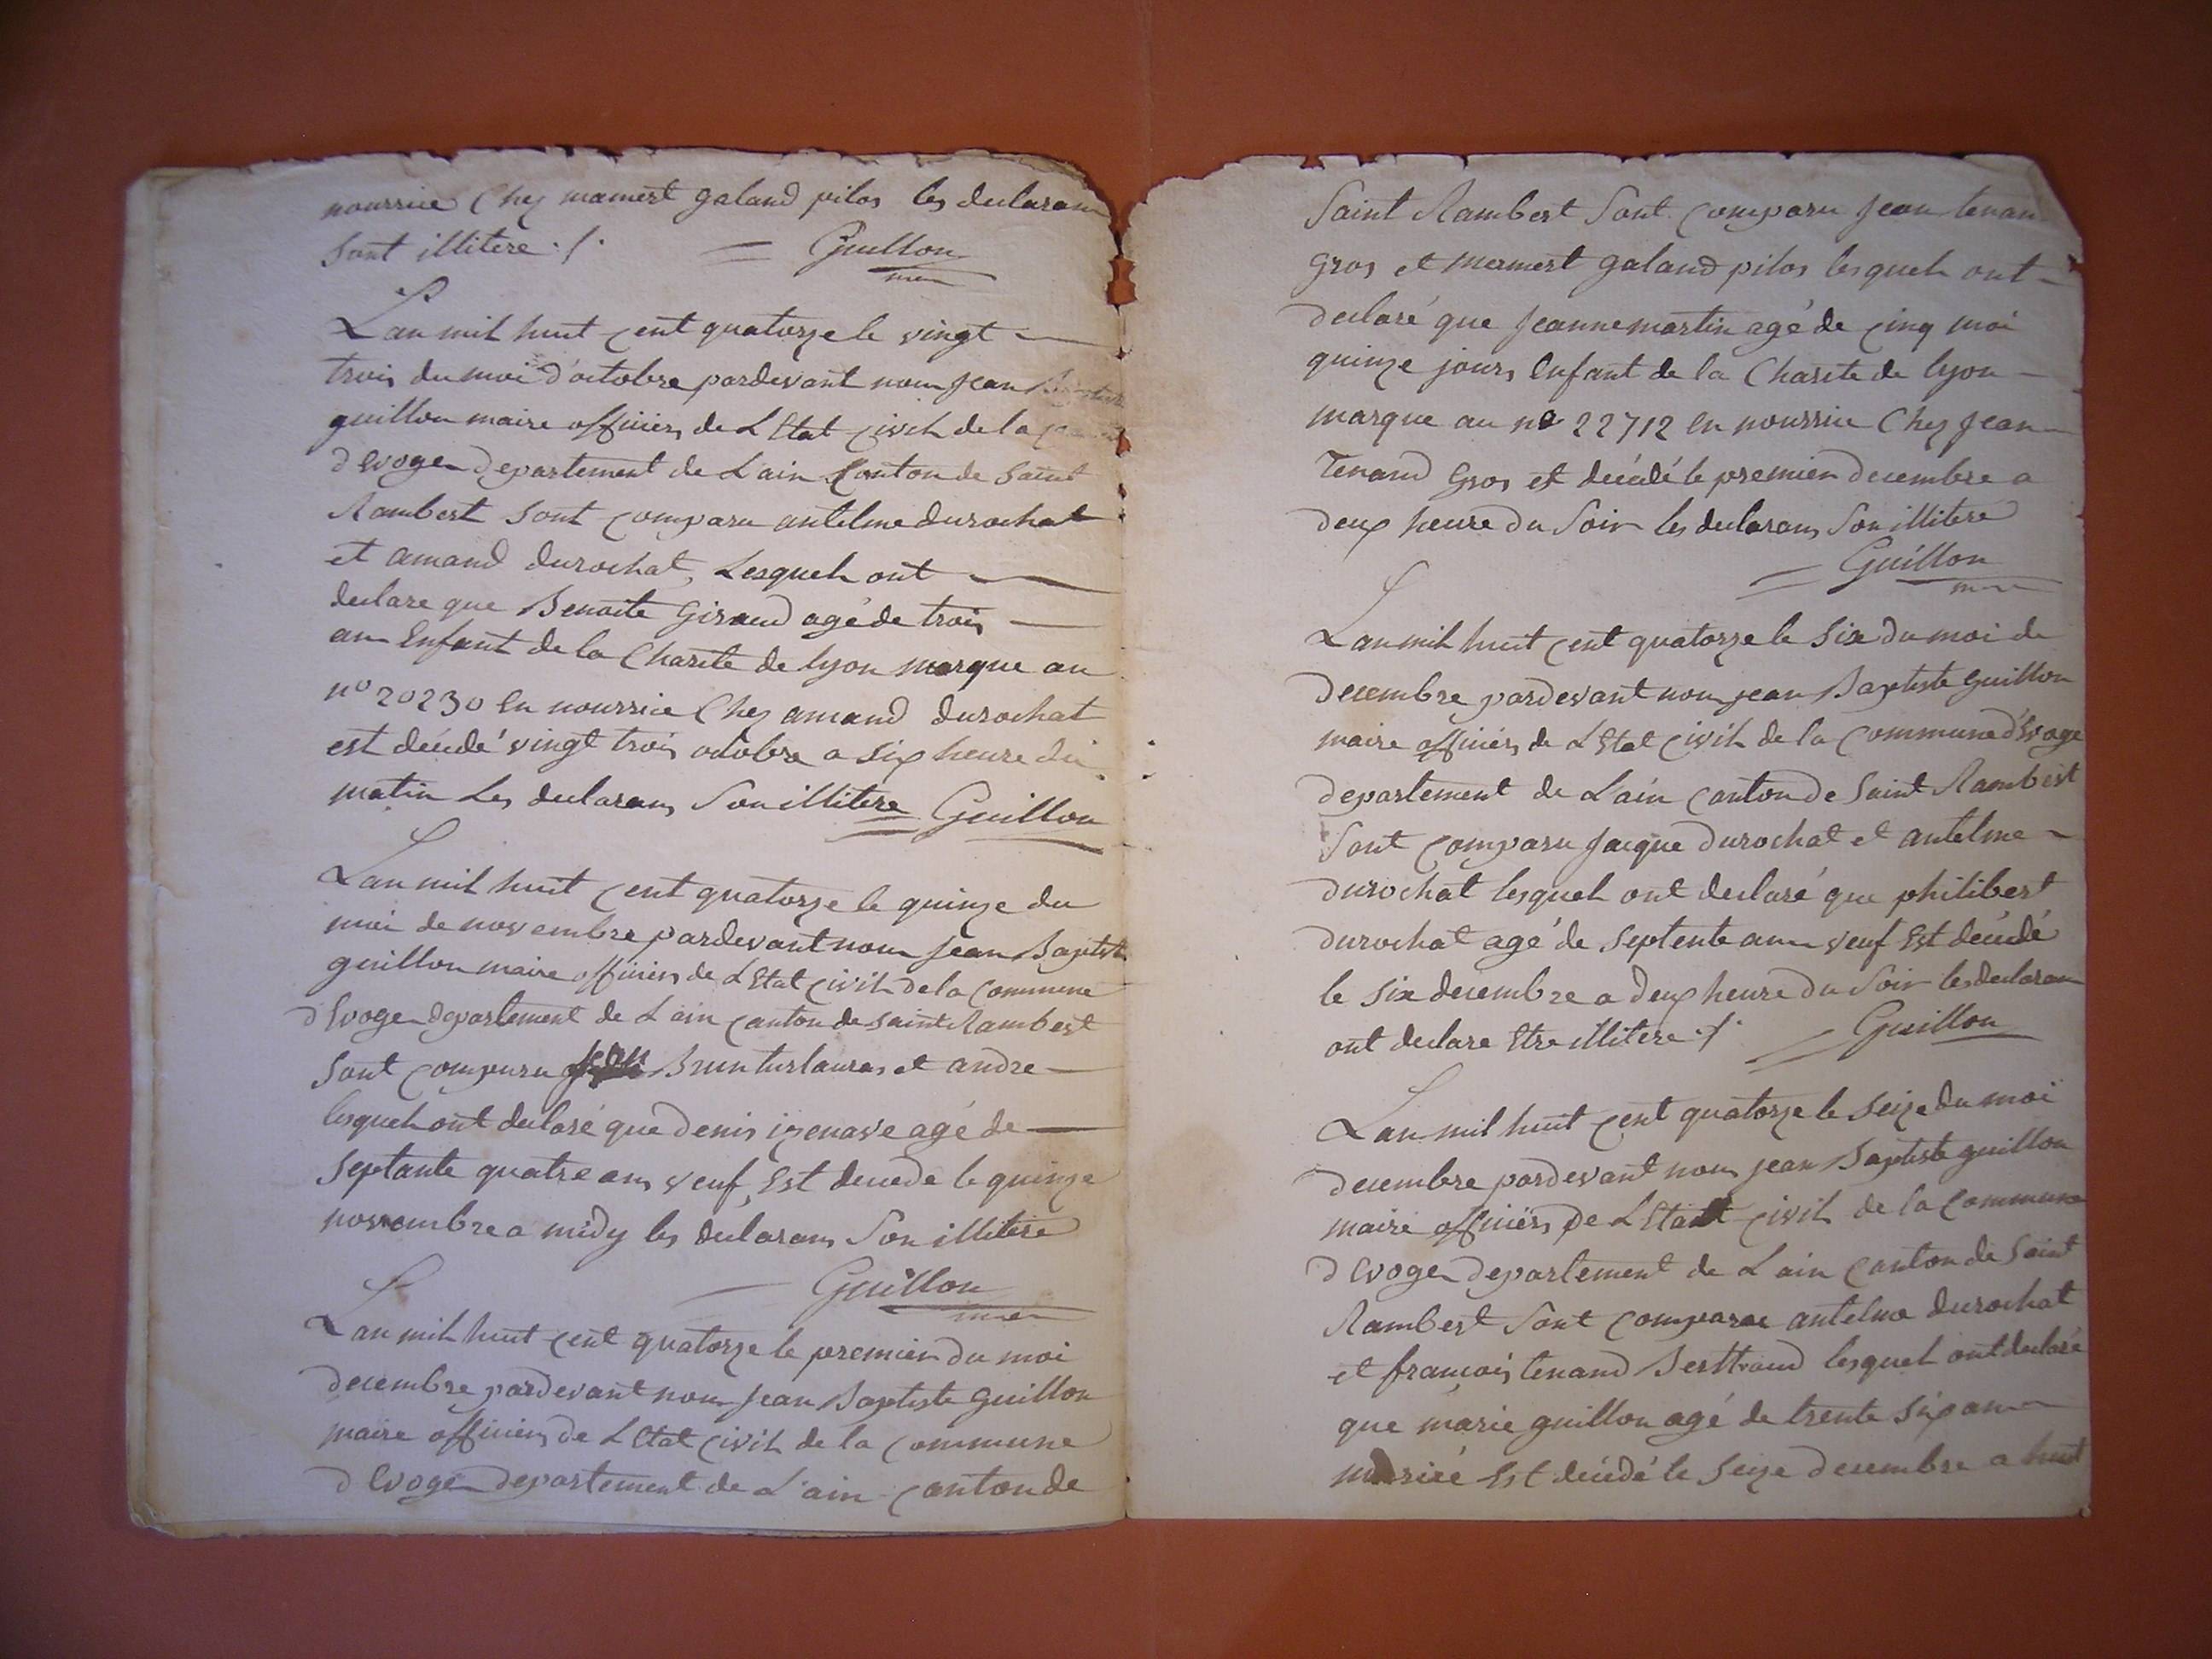 nourrice Chez mamert galand pilos les declarans
sont illitere ./. = Guillon
mer
Lan mil huit cent quatorze le vingt
trois du moi d'octobre pardevant nous jean Baptiste
guillon maire officiers de L Etat civil de la
d Evoge departement de L'ain Canton de Saint
Rambert sont comparu antelme durochat
et amand durochat, Lesquels ont
declare que Benoite Giraud agé de trois
ans Enfant de la Charite de lyon marque au
n° 20230 En nourrice Chez amand durochat
est décédé vingt trois octobre a six heure du
matin Les declarans Son illitere Guillon
Lan mil huit cent quatorze le quinze du
moi de novembre pardevant nous Jean Baptiste
guillon maire officiers de L Etat civil de la Commune
d Evoge departement de L ain canton de saint Rambert
sont comparu jean Brun turlauras et andre
lesquels ont declaré que denis izenave agé de
septante quatre ans veuf Est decede le quinze
novembre a midy les declarans Son illitere
Guillon
mer
Lan mil huit cent quatorze le premier du moi
decembre pardevant nous Jean Baptiste Guillon
maire officiers de L Etat civil de la commune
d Evoge departement de L'ain canton de
Saint Rambert Sont comparu Jean tenan
Gros et mamert galand pilos lesquels ont
declaré que Jeanne martin agé de cinq moi
quinze jours Enfant de la Charite de lyon
marque au n° 22712 En nourrice Chez Jean
Tenand Gros et décédé le premier decembre a
deux heure du Soir les declarans Son illitere
Guillon
mer
Lan mil huit cent quatorze le six du moi de
decembre pardevant nous jean Baptiste guillon
maire officiers de L Etat civil de la Commune d'Evoge
departement de L'ain canton de Saint Rambert
Sont comparu Jacque durochat et antelme
durochat lesquels ont declaré que philibert
durochat agé de septente ans veuf Est décédé
le six decembre a deux heure du Soir les declarans
ont declare Etre illitere ./. Guillon
Lan mil huit cent quatorze le seize du moi
decembre pardevant nous jean Baptiste guillon
maire officiers de L Etat civil de la Commune
d Evoge departement de L ain canton de Saint
Rambert Sont comparu antelme durochat
et francois tenand Berttrand lesquels ont declaré
que marie guillon agé de trente six ans
mariée Est décédé le seize decembre a huit